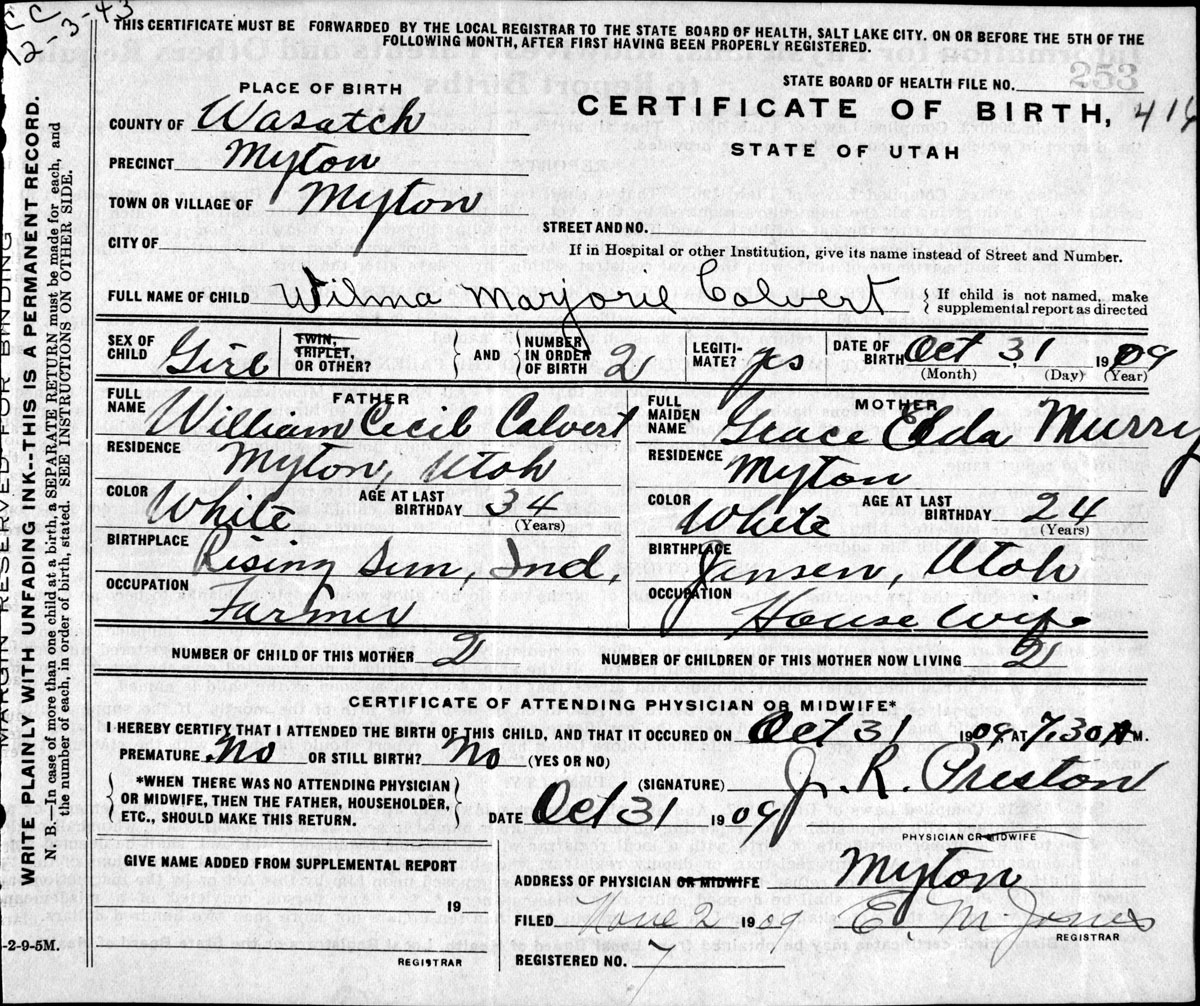 CC
12-3-43
THIS CERTIFICATE MUST BE FORWARDED BY THE LOCAL REGISTRAR TO THE STATE BOARD OF HEALTH, SALT LAKE CITY, ON OR BEFORE THE 5TH OF THE
FOLLOWING MONTH, AFTER FIRST HAVING BEEN PROPERLY REGISTERED.
STATE BOARD OF HEALTH FILE NO. 253
PLACE OF BIRTH
CERTIFICATE OF BIRTH, 416
STATE OF UTAH
COUNTY OF Wasatch
PRECINCT Myton
TOWN OR VILLAGE OF Myton
STREET AND NO.
CITY OF
If in Hospital or other Institution, give its name instead of Street and Number.
FULL NAME OF CHILD Wilma Marjorie Calvert { If child is not named, make
supplemental report as directed
SEX OF CHILD Girl TWIN, TRIPLET, OR OTHER? } AND { NUMBER IN ORDER OF BIRTH 2 LEGITI-MATE? yes DATE OF BIRTH Oct 31, 1909
(Month) (Day) (Year)
FATHER
FULL NAME William Cecil Calvert
RESIDENCE Myton, Utah
COLOR White AGE AT LAST BIRTHDAY 34
(Years)
BIRTHPLACE Rising Sun, Ind,
OCCUPATION Farmer
MOTHER
FULL MAIDEN NAME Grace Elda Murry
RESIDENCE Myton
COLOR White AGE AT LAST BIRTHDAY 24
(Years)
BIRTHPLACE Jensen, Utah
OCCUPATION House Wife
NUMBER OF CHILD OF THIS MOTHER 2 NUMBER OF CHILDREN OF THIS MOTHER NOW LIVING 2
CERTIFICATE OF ATTENDING PHYSICIAN OR MIDWIFE*
I HEREBY CERTIFY THAT I ATTENDED THE BIRTH OF THIS CHILD, AND THAT IT OCCURED ON Oct 31 1909 AT 7.30 A M.
PREMATURE No OR STILL BIRTH? No (YES OR NO)
{ *WHEN THERE WAS NO ATTENDING PHYSICIAN
OR MIDWIFE, THEN THE FATHER, HOUSEHOLDER,
ETC., SHOULD MAKE THIS RETURN. }
(SIGNATURE) J. R. Preston
DATE Oct 31 1909
PHYSICIAN OR MIDWIFE
GIVE NAME ADDED FROM SUPPLEMENTAL REPORT
19
REGISTRAR
ADDRESS OF PHYSICIAN OR MIDWIFE Myton
FILED Nov 2 1909 E. M. Jones
REGISTRAR
REGISTERED NO. 7
-2-9-5M.
MARGIN RESERVED FOR BINDING
WRITE PLAINLY WITH UNFADING INK--THIS IS A PERMANENT RECORD.
N. B.—In case of more than one child at a birth, a SEPARATE RETURN must be made for each, and
the number of each, in order of birth, stated. SEE INSTRUCTIONS ON OTHER SIDE.